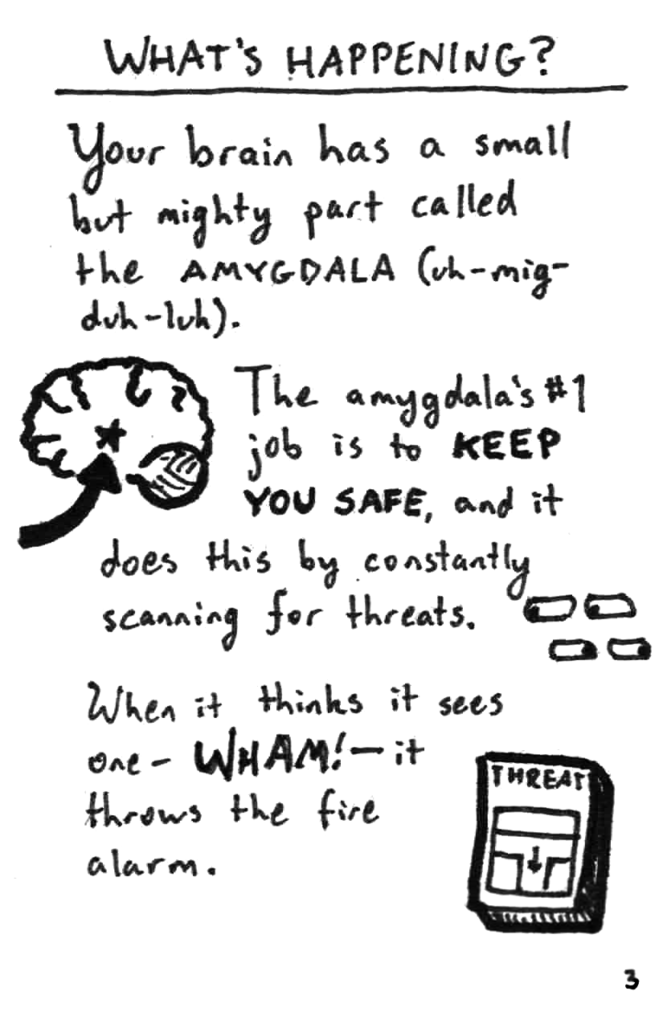 WHAT'S HAPPENING?
Your brain has a small
but mighty part called
the AMYGDALA (uh-mig-
duh-luh).
The amygdala's #1
job is to KEEP
YOU SAFE, and it
does this by constantly
scanning for threats.
When it thinks it sees
one - WHAM! - it
throws the fire
alarm.
THREAT
3